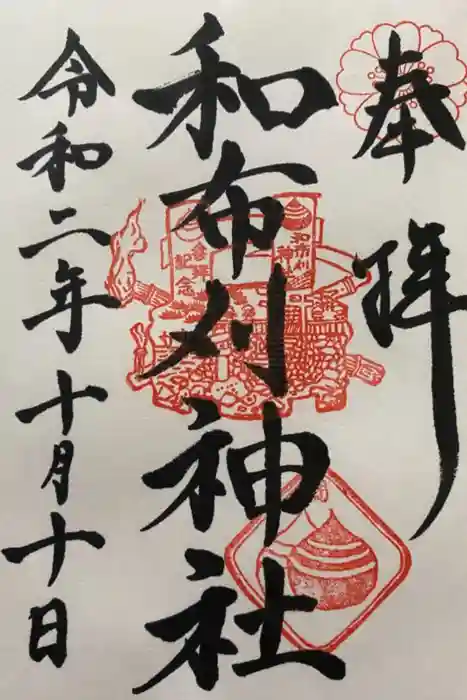 奉拝
和布刈神社
令和二年十月十日
和布刈
神社
参拝
記念